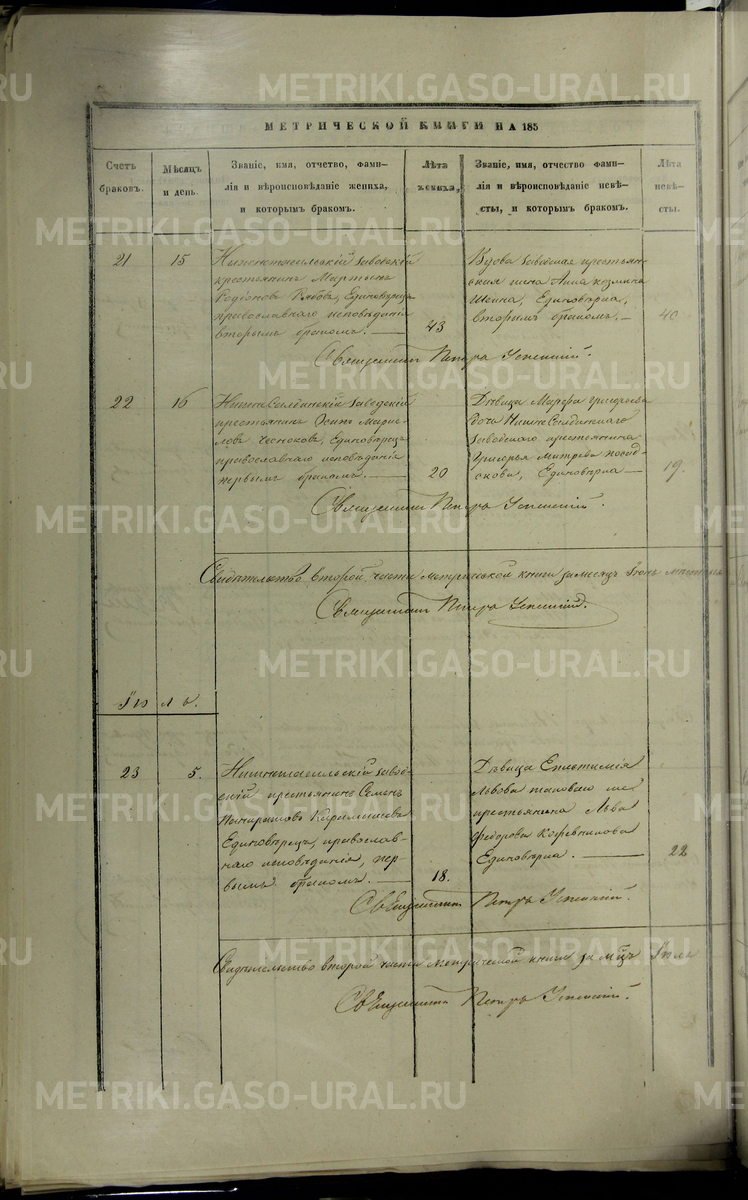 МЕТРИЧЕСКОЙ КНИГИ НА 185
Счетъ браковъ.
Мѣсяцъ и день.
Званіе, имя, отчетво, фами-
лія и вѣроисповѣданіе жениха,
и которымъ бракомъ.
Лѣта жениха,
Званіе, имя, отчество фами-
лія и вѣроисповѣданіе невѣ-
сты, и которымъ бракомъ.
Лѣта невѣ-
сты.
21
15
Нижнетагильскій заводскій
крестьянинъ Мартынъ
Родіоновъ Рябовъ, Единовѣрецъ
православнаго исповѣданія
вторымъ бракомъ.
43
Вдова заводская крестьян-
ская жена Анна Козмина
Единовѣрка,
вторымъ бракомъ.
40
Священникъ Петръ Успенскій.
22
16
Нижнесалдинскій заводскій
крестьянинъ Осипъ
Чесноковъ, Единовѣрецъ
православнаго исповѣданія
первымъ бракомъ.
20
Дѣвица Марфа Григорьева
дочь Нижнесалдинскаго
заводскаго крестьянина
Григорья Митрева
Единовѣрка
19.
Священникъ Петръ Успенскій.
Свидѣтельство второй части метрической книги за месяцъ Іюнь
Священникъ Петръ Успенскій.
Іюль.
23
5.
Нижнетагильскій завод-
скій крестьянинъ Семенъ
Единовѣрецъ, православ-
наго исповѣданія, пер-
вымъ бракомъ.
18.
Дѣвица
Львова таковаго же
крестьянина Льва
Федорова Кожевникова
Единовѣрка.
22
Священникъ Петръ Успенскій.
Свидѣтельство второй части метрической книги за мцъ Іюль
Священникъ Петръ Успенскій.
METRIKI.GASO-URAL.RU